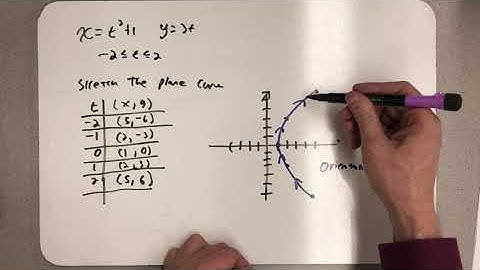 x=t²+1 y=3t
-2≤t≤2
Sketch The plane curve
t (x,y)
-2 (5,-6)
-1 (2,-3)
0 (1,0)
1 (2,3)
2 (5,6)